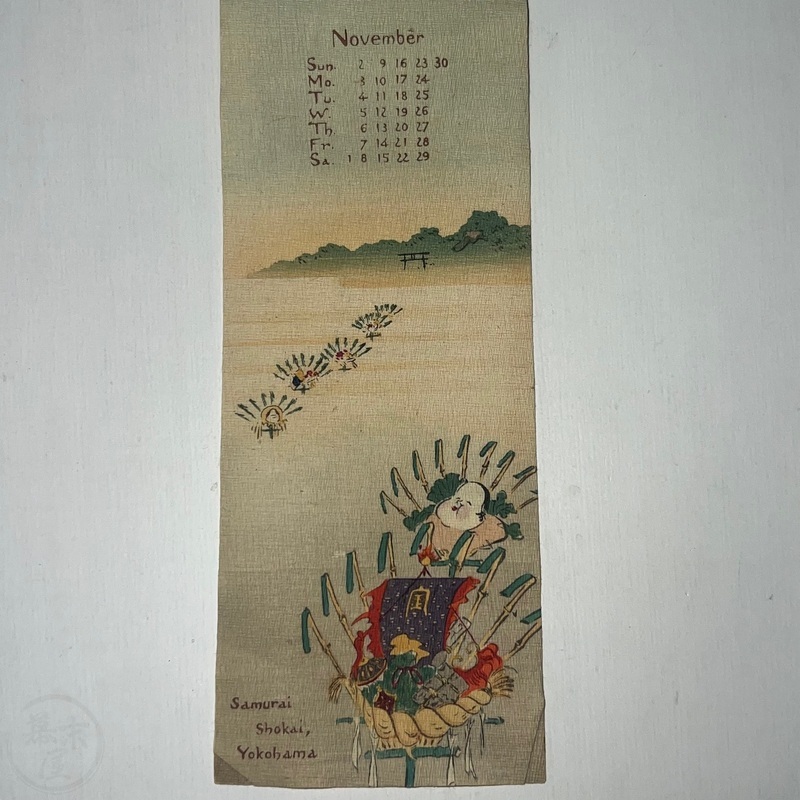 November
Sun. 2 9 16 23 30
Mo. 3 10 17 24
Tu. 4 11 18 25
W. 5 12 19 26
Th. 6 13 20 27
Fr. 7 14 21 28
Sa. 1 8 15 22 29
宝
Samurai
Shokai,
Yokohama